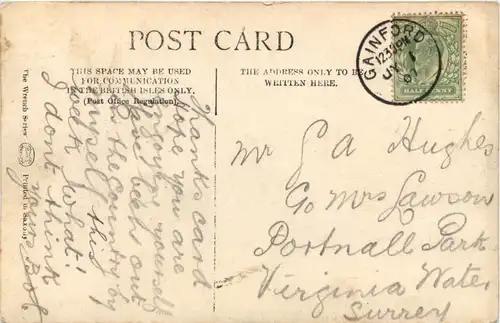 POST CARD
THIS SPACE MAY BE USED
FOR COMMUNICATION
IN THE BRITISH ISLES ONLY.
(Post Office Regulation).
THE ADDRESS ONLY TO BE
WRITTEN HERE.
GAINFORD
12.30PM
JY 1
HALFPENNY
The Wrench Series
Printed in Saxony
Thanks card
hope you are
enjoying yourself
have been out
in the country by
myself this
week what!
I don't think
yours Bob.
Mr G A Hughes
C/o Mrs Lawson
Portnall Park
Virginia Water
Surrey